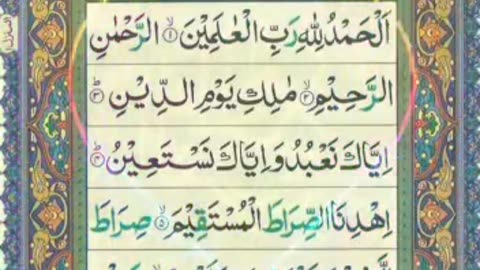 اَلْحَمْدُ لِلّٰهِ رَبِّ الْعٰلَمِیْنَ ۙ﴿۱﴾ الرَّحْمٰنِ
الرَّحِیْمِ ۙ﴿۲﴾ مٰلِكِ یَوْمِ الدِّیْنِ ؕ﴿۳﴾
اِیَّاكَ نَعْبُدُ وَ اِیَّاكَ نَسْتَعِیْنُ ؕ﴿۴﴾
اِهْدِنَا الصِّرَاطَ الْمُسْتَقِیْمَ ۙ﴿۵﴾ صِرَاطَ